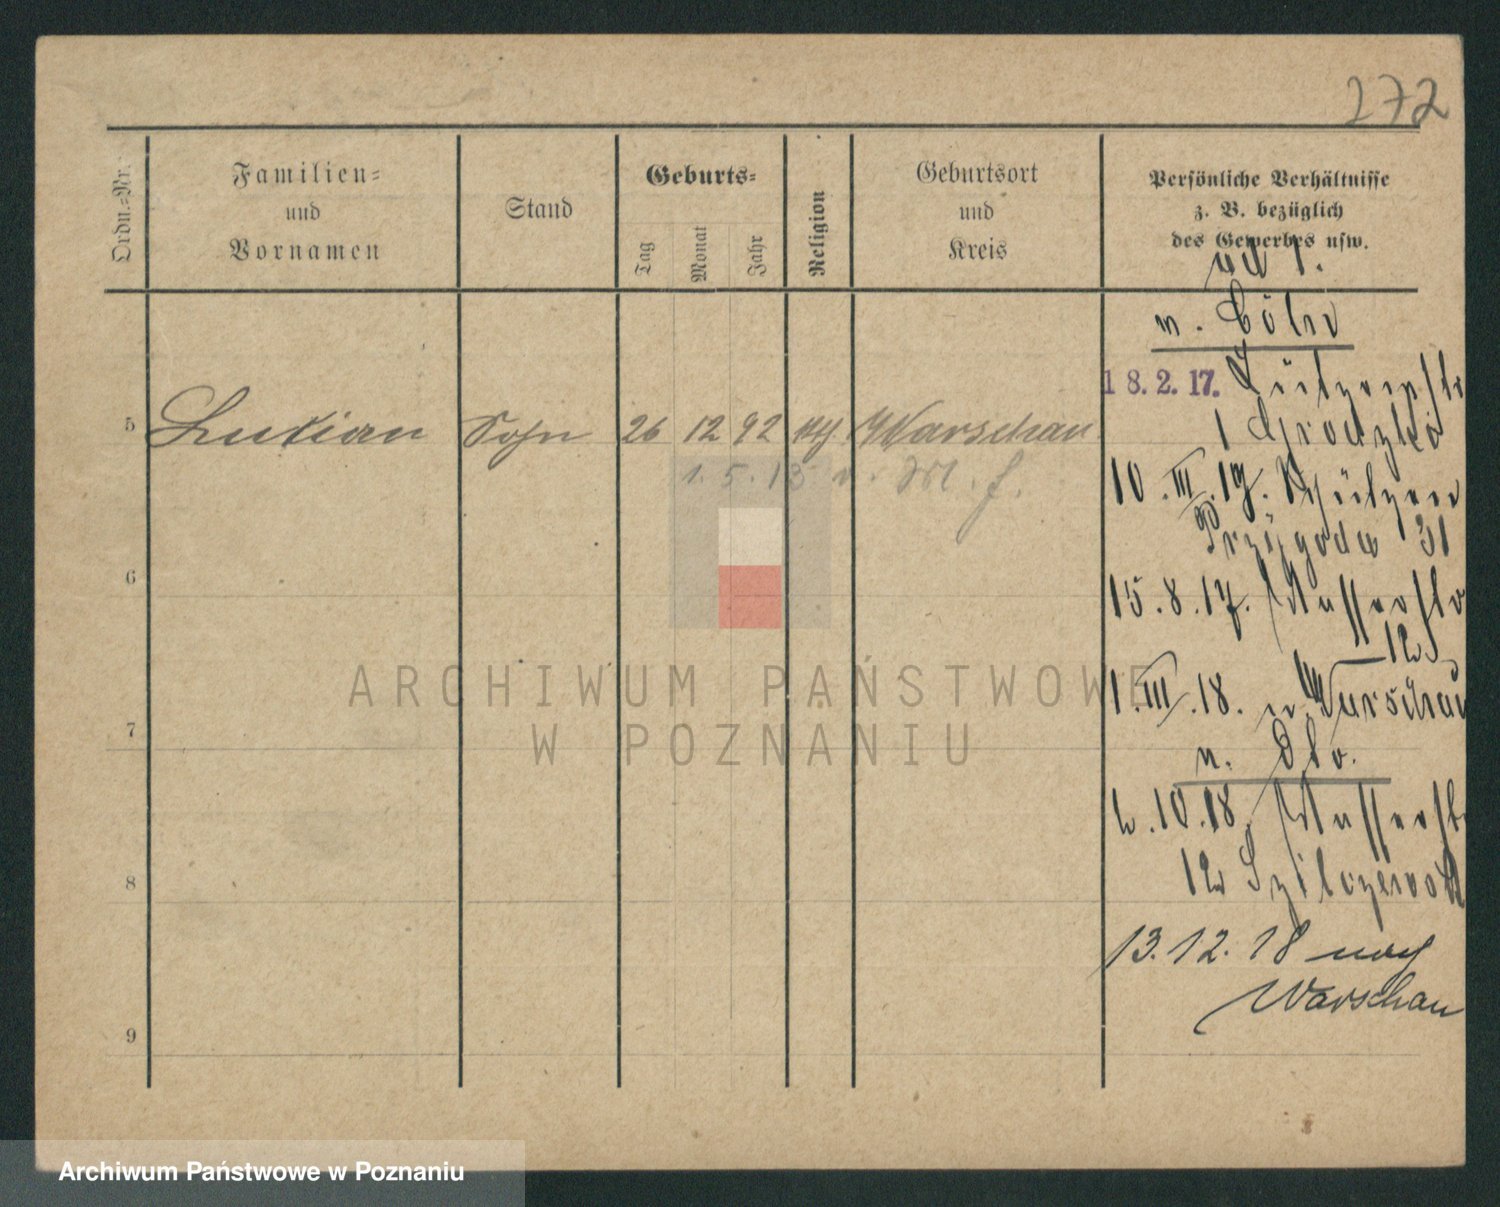 272
Ordn.-Nr.
Familien-
und
Vornamen
Stand
Geburts-
Tag
Monat
Jahr
Religion
Geburtsort
und
Kreis
Persönliche Verhältnisse
z. B. bezüglich
des Gewerbes usw.
n. Cöln
18.2.17.
1 Grodzki
5 Lucian Sohn 26 12 92 Warschau
1.5.13 v. M. f.
10.III.17. Schützen
Przygoda 31
6
15.8.17.
12
1.III.18. n. Warschau
7
n. Dto.
10.18.
8
12
13.12.18 nach
Warschau
9
ARCHIWUM PAŃSTWOWE
W POZNANIU
Archiwum Państwowe w Poznaniu